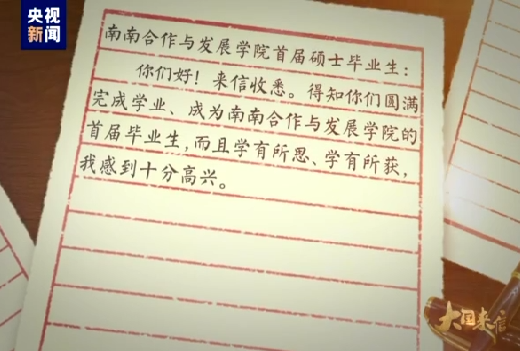 央视
新闻
南南合作与发展学院首届硕士毕业生：
你们好！来信收悉。得知你们圆满
完成学业、成为南南合作与发展学院的
首届毕业生，而且学有所思、学有所获，
我感到十分高兴。
大国来信